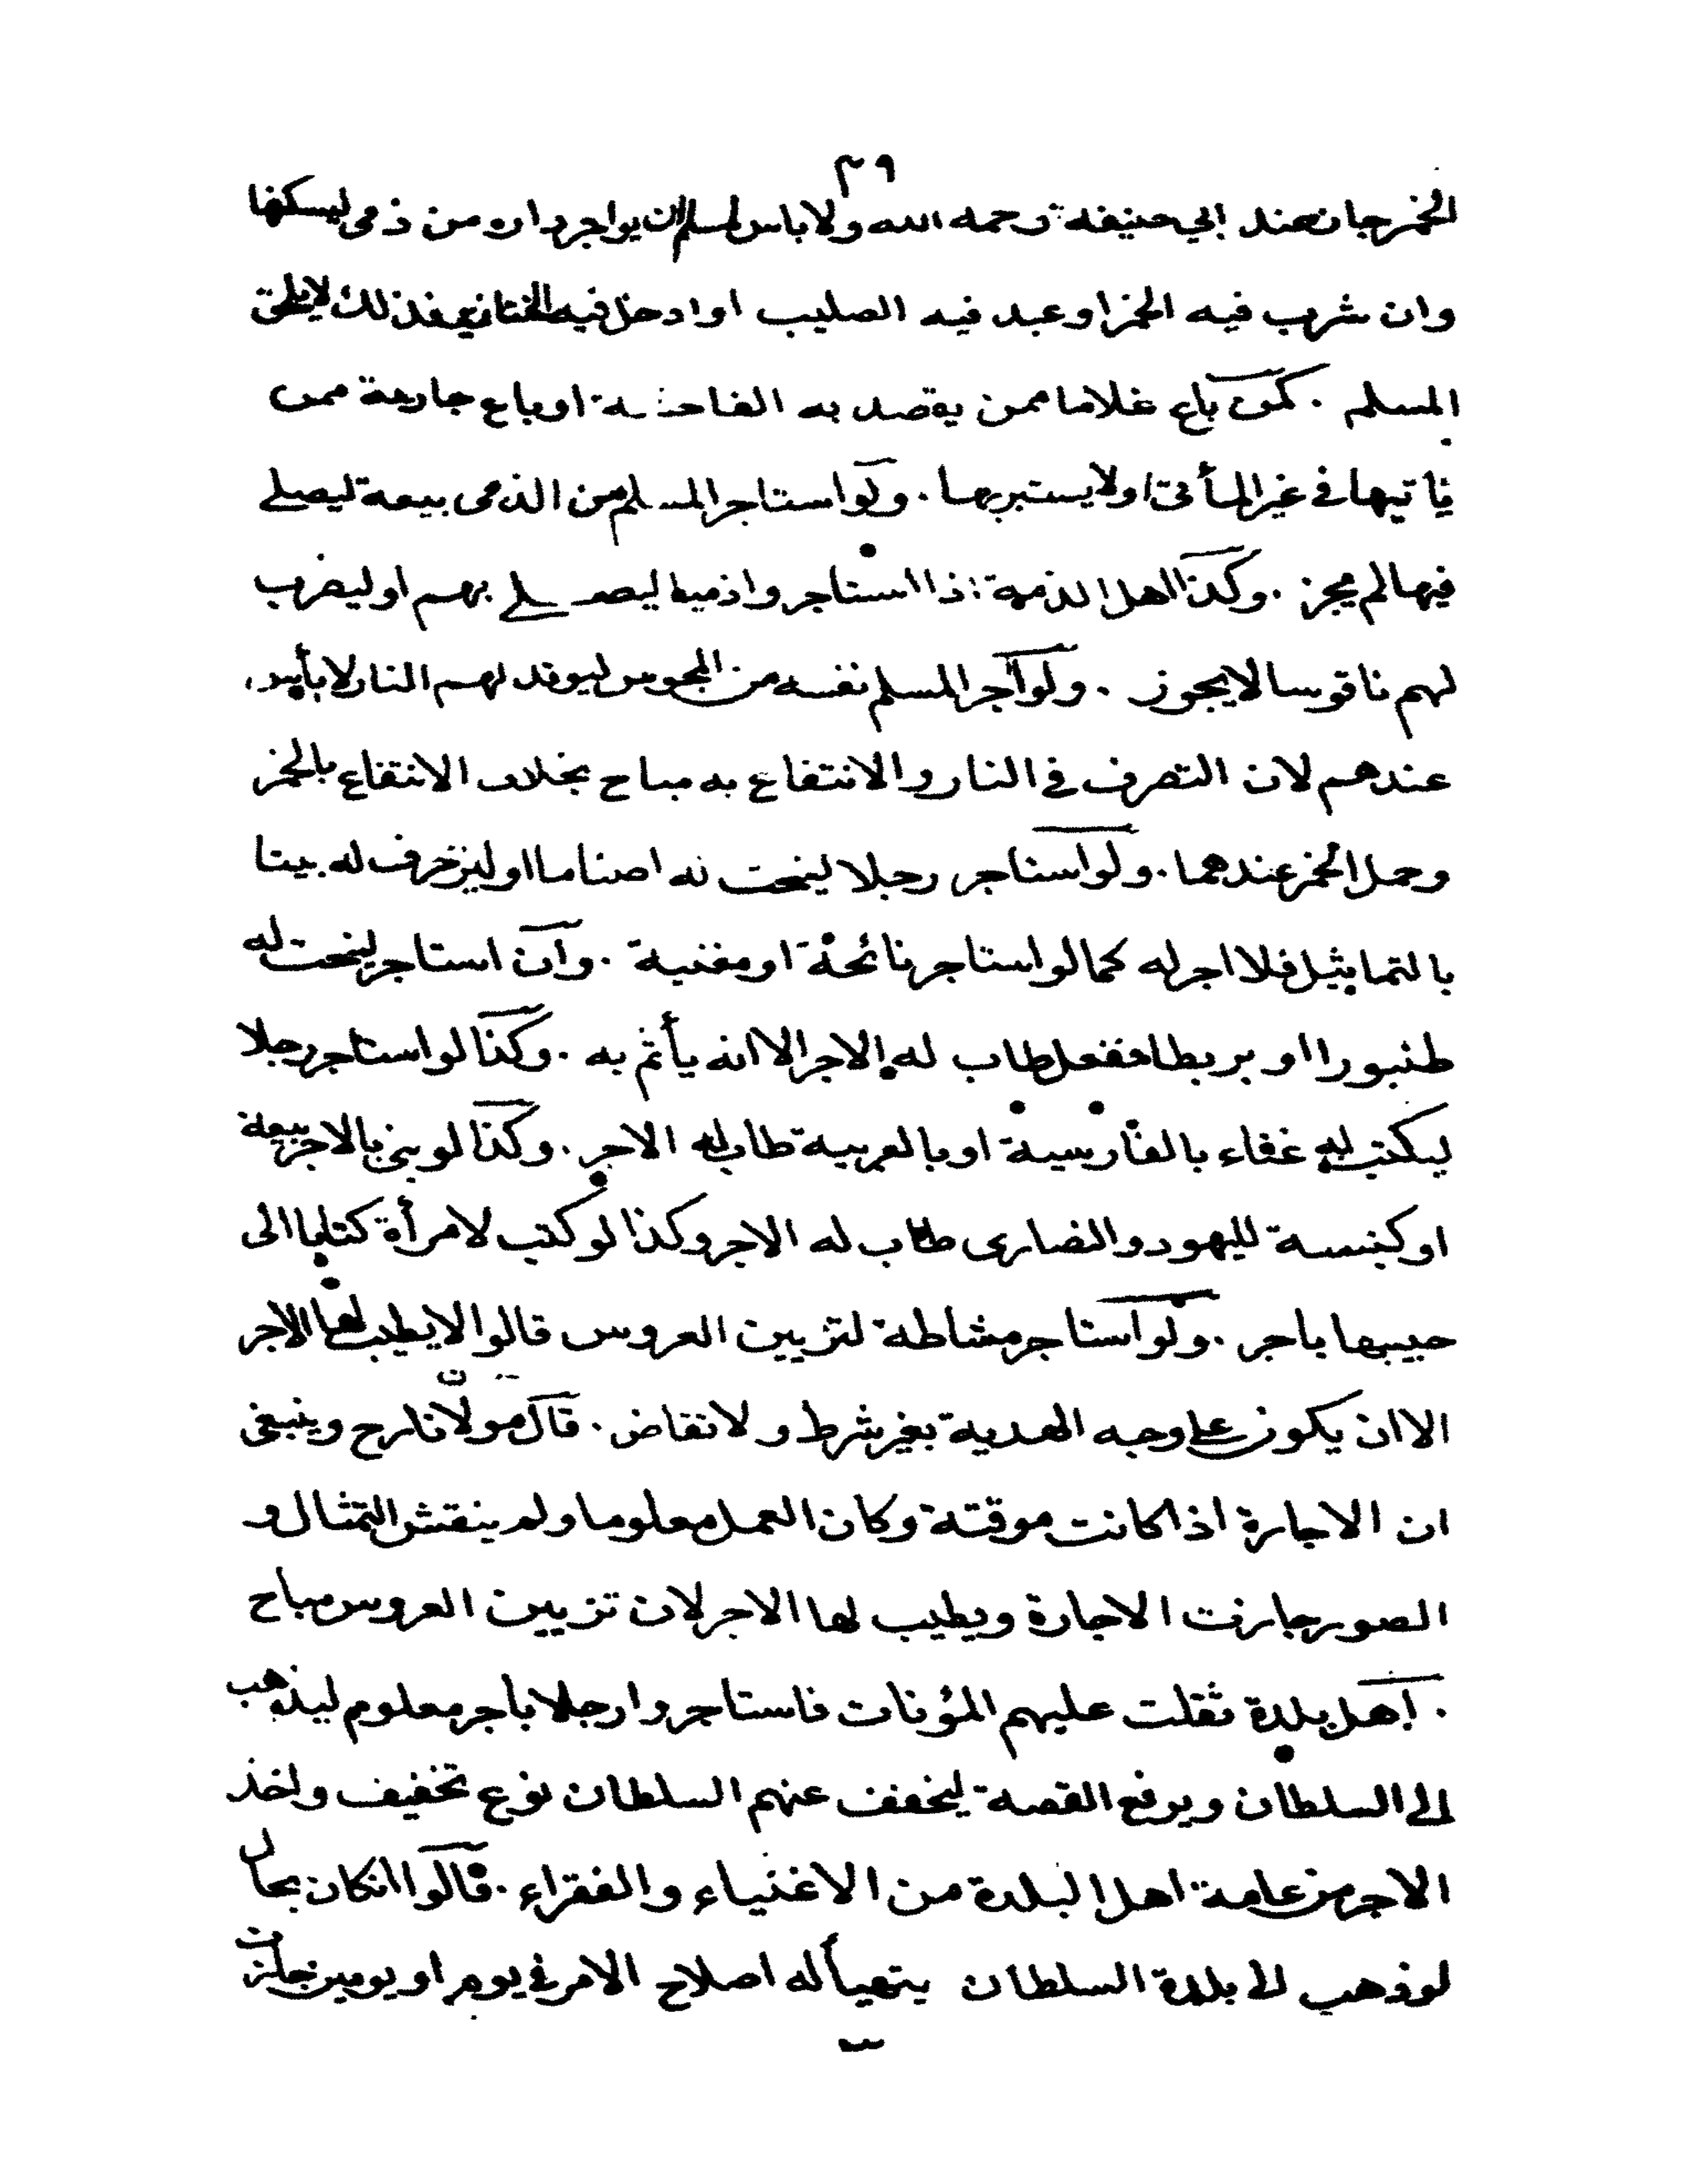 ٣٩
الخمر جاز عند ابي حنيفة رحمه الله ولا باس لمسلم ان يواجر داره من ذمى ليسكنها
وان شرب فيه الخمر او عبد فيه الصليب او ادخل فيه الخنازير فذلك لا يلحق
المسلم . كمن باع غلاما ممن يقصد به الفاحشة او باع جارية ممن
ياتيها فى غير المأتى او لا يستبريها . ولو استاجر المسلم من الذمى بيعة ليصلى
فيها لم يجز . وكذا اهل الذمة اذا استاجروا ذميا ليصلى بهم او ليضرب
لهم ناقوسا لا يجوز . ولو آجر المسلم نفسه من المجوس ليوقد لهم النار لا بأس
عندهم لان التصرف فى النار والانتفاع به مباح بخلاف الانتفاع بالخمر
وحمل الخمر عندهما . ولو استاجر رجلا لينحت له اصناما او ليزخرف له بيتا
بالتماثيل فلا اجر له كما لو استاجر نائحة او مغنية . وان استاجر لينحت له
طنبورا او بربطا ففعل طاب له الاجر الا انه يأثم به . وكذا لو استاجر رجلا
ليكتب له غناء بالفارسية او بالعربية طاب له الاجر . وكذا لو بنى بالاجر بيعة
او كنيسة لليهود والنصارى طاب له الاجر وكذا لو كتب لامرأة كتابا الى
حبيبها باجر . ولو استاجر مشاطة لتزيين العروس قالوا لا يطيب لها الاجر
الا ان يكون على وجه الهدية بغير شرط ولا تقاض . قال مولانا رح وينبغى
ان الاجارة اذا كانت موقتة وكان العمل معلوما ولم ينقش التمثال و
الصور جازت الاجارة ويطيب لها الاجر لان تزيين العروس مباح
. اهل بلدة ثقلت عليهم المؤنات فاستاجروا رجلا بأجر معلوم ليذهب
الى السلطان ويرفع القصة ليخفف عنهم السلطان نوع تخفيف واخذ
الاجر من عامة اهل البلدة من الاغنياء والفقراء . قالوا ان كان بحال
لو ذهب الى بلدة السلطان يتهيأ له اصلاح الامر فى يوم او يومين جازت